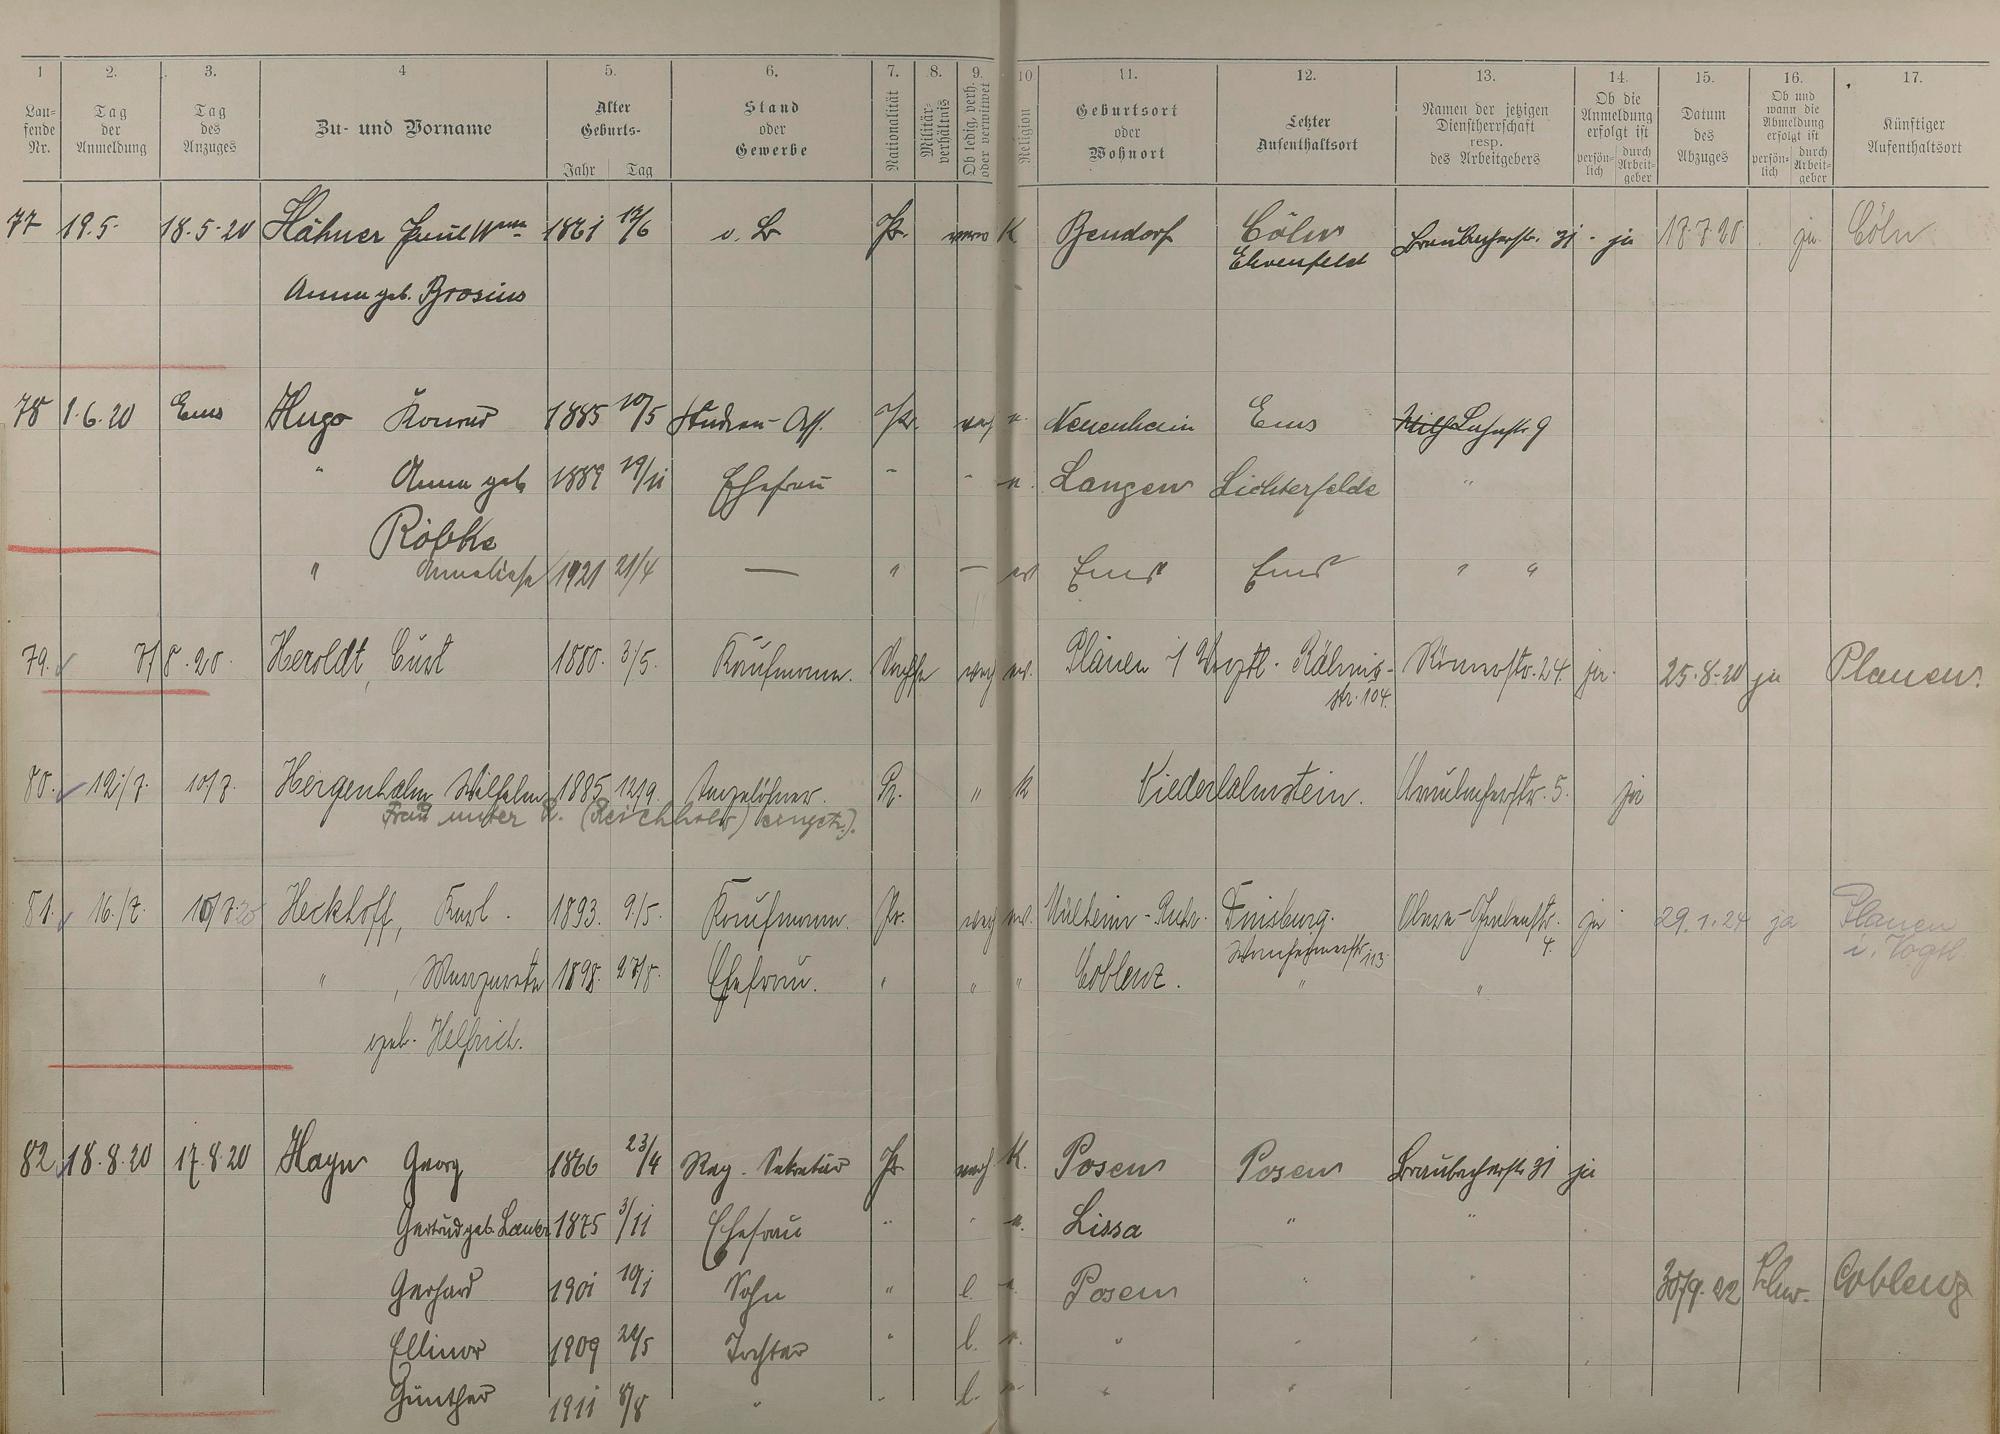 1 2. 3. 4 5. 6. 7. 8. 9. 10 11. 12. 13. 14. 15. 16. 17.
Lau- fende Nr.
Tag der Anmeldung
Tag des Anzuges
Zu- und Vorname
Alter Geburts- Jahr Tag
Stand oder Gewerbe
Nationalität
Militär- verhältnis
Ob ledig, verh. oder verwitwet
Religion
Geburtsort oder Wohnort
Letzter Aufenthaltsort
Namen der jetzigen Dienstherrschaft resp. des Arbeitgebers
Ob die Anmeldung erfolgt ist persön- lich durch Arbeit- geber
Datum des Abzuges
Ob und wann die Abmeldung erfolgt ist persön- lich durch Arbeit- geber
Künftiger Aufenthaltsort
77 19.5. 18.5.20 Hähner Paul Wwe 1861 17/6 o. B. Pr. verw K Bendorf Cöln Braubacherstr. 31 - ja 18.7.20 ja Cöln
Ehrenfeld
Anna geb. Brosius
78 1.6.20 Ems Hugo Konrad 1885 10/5 Studien-Ass. Pr. verh Neuenhain Ems Lahnstr 9
" Anna geb 1889 19/11 Ehefrau " " Langen Lichterfelde "
Röbke
" Anneliese 1921 21/4 — " — ev Ems Ems " "
79. 7/8.20. Heroldt, Curt 1880. 3/5. Kaufmann. Sachse verh ev. Plauen i Vogtl. Römerstr. 24 ja. 25.8.20 ja Plauen.
str. 104.
80. 12/7. 10/7. Hergenhahn Wilhelm 1885 12/9. Tagelöhner. Pr. " K Niederlahnstein. 5. ja
Frau unter R. (Reichholt) eingetr.).
81. 16./7. 10/7.20 Heckhoff, Karl. 1893. 9/5. Kaufmann. Pr. verh ev. Mülheim-Ruhr. Duisburg. Obere-Grabenstr. ja 29.1.24 ja Plauen
Wanheimerstr 113. 4. i. Vogtl.
" , Margarete 1898. 27/8. Ehefrau. " " " Coblenz. " "
geb. Helfrich.
82 18.8.20 17.8.20 Hayn Georg 1866 23/4 Reg. Sekretär Pr. verh K. Posen Posen Braubacherstr 31 ja
Gertrud geb. 1875 3/11 Ehefrau " " " Lissa " "
Gerhard 1901 19/1 Sohn " l. " Posen " " 30/9.22 Coblenz
Ellinor 1909 24/5 Tochter " l. " " " "
Günther 1911 8/8 " " l. " " "